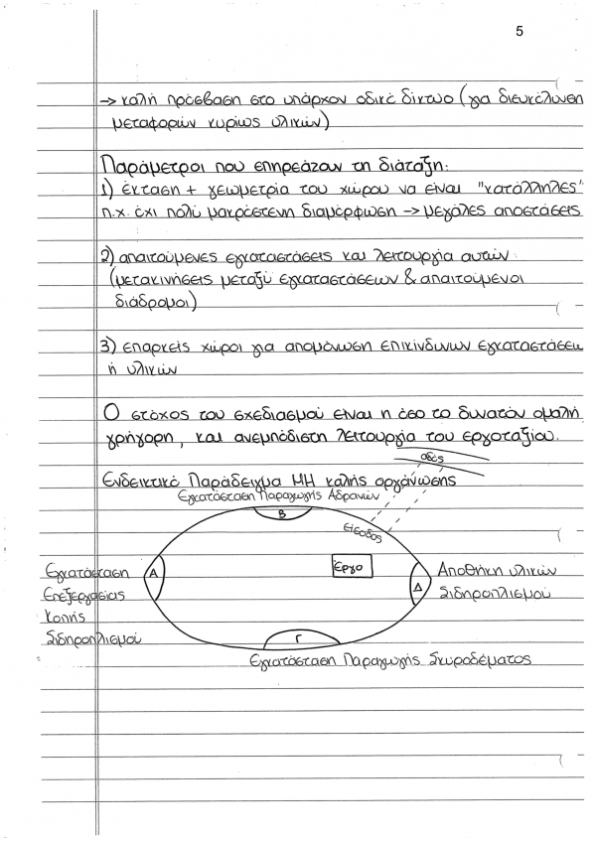 5
→ καλή πρόσβαση στο υπάρχον οδικό δίκτυο (για διευκόλυνση
μεταφορών κυρίως υλικών)
Παράμετροι που επηρεάζουν τη διάταξη:
1) έκταση + γεωμετρία του χώρου να είναι "κατάλληλες"
π.χ. όχι πολύ μακρόστενη διαμόρφωση → μεγάλες αποστάσεις
2) απαιτούμενες εγκαταστάσεις και λειτουργία αυτών.
(μετακινήσεις μεταξύ εγκαταστάσεων & απαιτούμενοι
διάδρομοι)
3) επαρκείς χώροι για απομόνωση επικίνδυνων εγκαταστάσεων
ή υλικών
Ο στόχος του σχεδιασμού είναι η όσο το δυνατόν ομαλή,
γρήγορη, και ανεμπόδιστη λειτουργία του εργοταξίου.
οδός
Ενδεικτικό Παράδειγμα ΜΗ καλής οργάνωσης
Εγκατάσταση Παραγωγής Αδρανών
Β
είσοδος
Εγκατάσταση
Επεξεργασίας
Κοπής
Σιδηροπλισμού
Α
Έργο
Δ
Αποθήκη υλικών
Σιδηροπλισμού
Γ
Εγκατάσταση Παραγωγής Σκυροδέματος